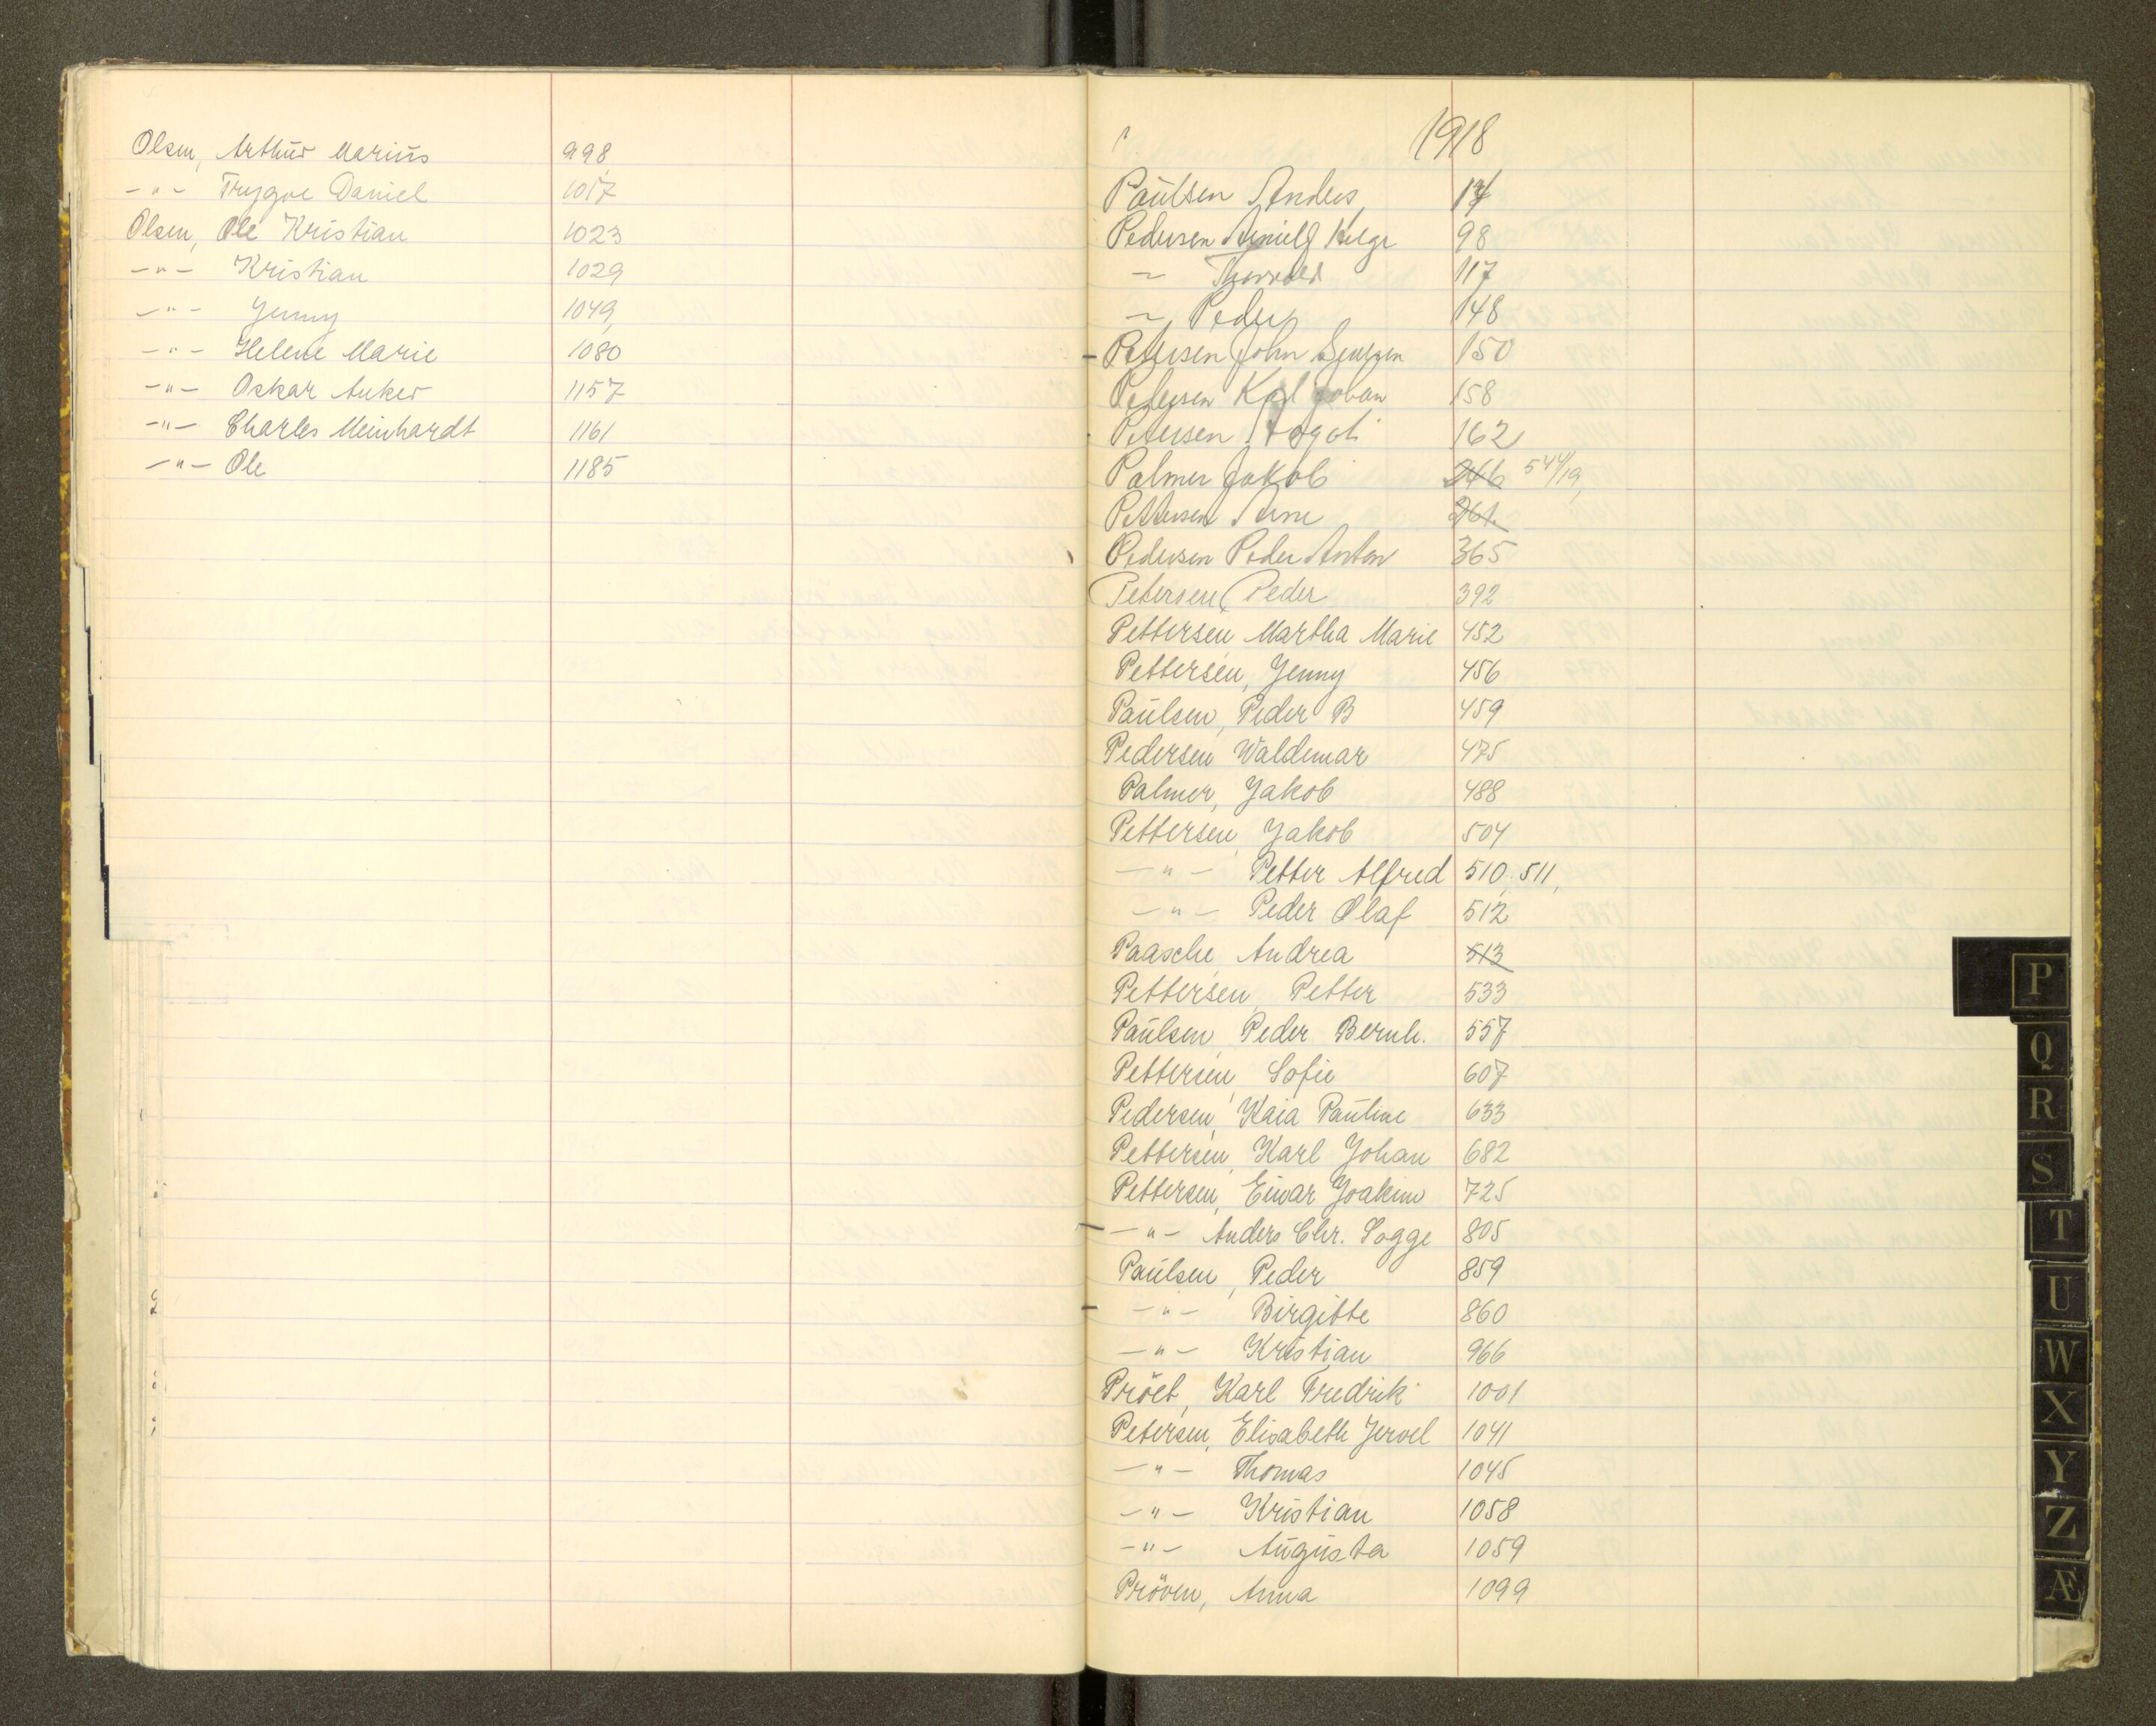 Olsen, Arthur Marius 998,
-"- Trygve Daniel 1017
Olsen, Ole Kristian 1023
-"- Kristian 1029
-"- Jenny 1049,
-"- Helene Marie 1080
-"- Oskar Anker 1157
-"- Charles Meinhardt 1161
-"- Ole 1185
1918
Paulsen Anders
Pedersen Helge 98
~ Thorvald 117
~ Peder 148
Pettersen John 150
Pedersen Karl Johan 158
Petersen 162
Palmer Jakob 246 544/19,
Pettersen Arne 261
Pedersen Peder Anton 365
Petersen, Peder 392
Pettersen Martha Marie 452
Pettersen, Jenny 456
Paulsen, Peder B 459
Pedersen Waldemar 475
Palmer, Jakob 488
Pettersen, Jakob 504
-"- Petter Alfred 510, 511,
-"- Peder Olaf 512
Paasche, Andrea 513
Pettersen, Petter 533
Paulsen, Peder Bernh. 557
Pettersen, Sofie 607
Pedersen, Kaia Pauline 633
Pettersen, Karl Johan 682
Pettersen, Einar Joakim 725
-"- Anders Chr. Sogge 805
Paulsen, Peder 859
-"- Birgitte 860
-"- Kristian 966
Pröet, Karl Fredrik 1001
Petersen, Elisabeth Jervel 1041
-"- Thomas 1045
-"- Kristian 1058
-"- Augusta 1059
Pröven, Anna 1099
P
Q
R
S
T
U
W
X
Y
Z
Æ